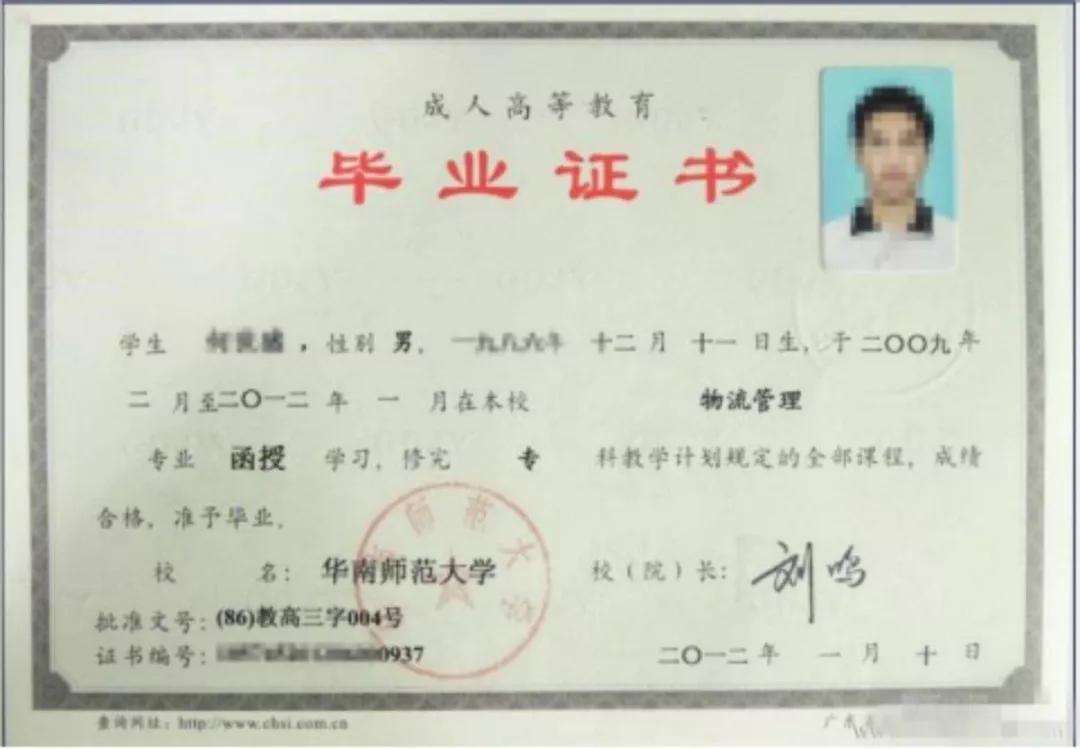 成人高等教育
毕业证书
学生 ，性别 男， 一九八六年 十二月 十一日生，于二〇〇九年
二 月至二〇一二 年 一 月在本校 物流管理
专业 函授 学习，修完 专 科教学计划规定的全部课程，成绩
合格，准予毕业。
师范大
校 名：华南师范大学 校（院）长：刘鸣
批准文号：(86)教高三字004号
证书编号： 0937 二〇一二年 一月 十日
查询网址：http://www.chsi.com.cn
广东